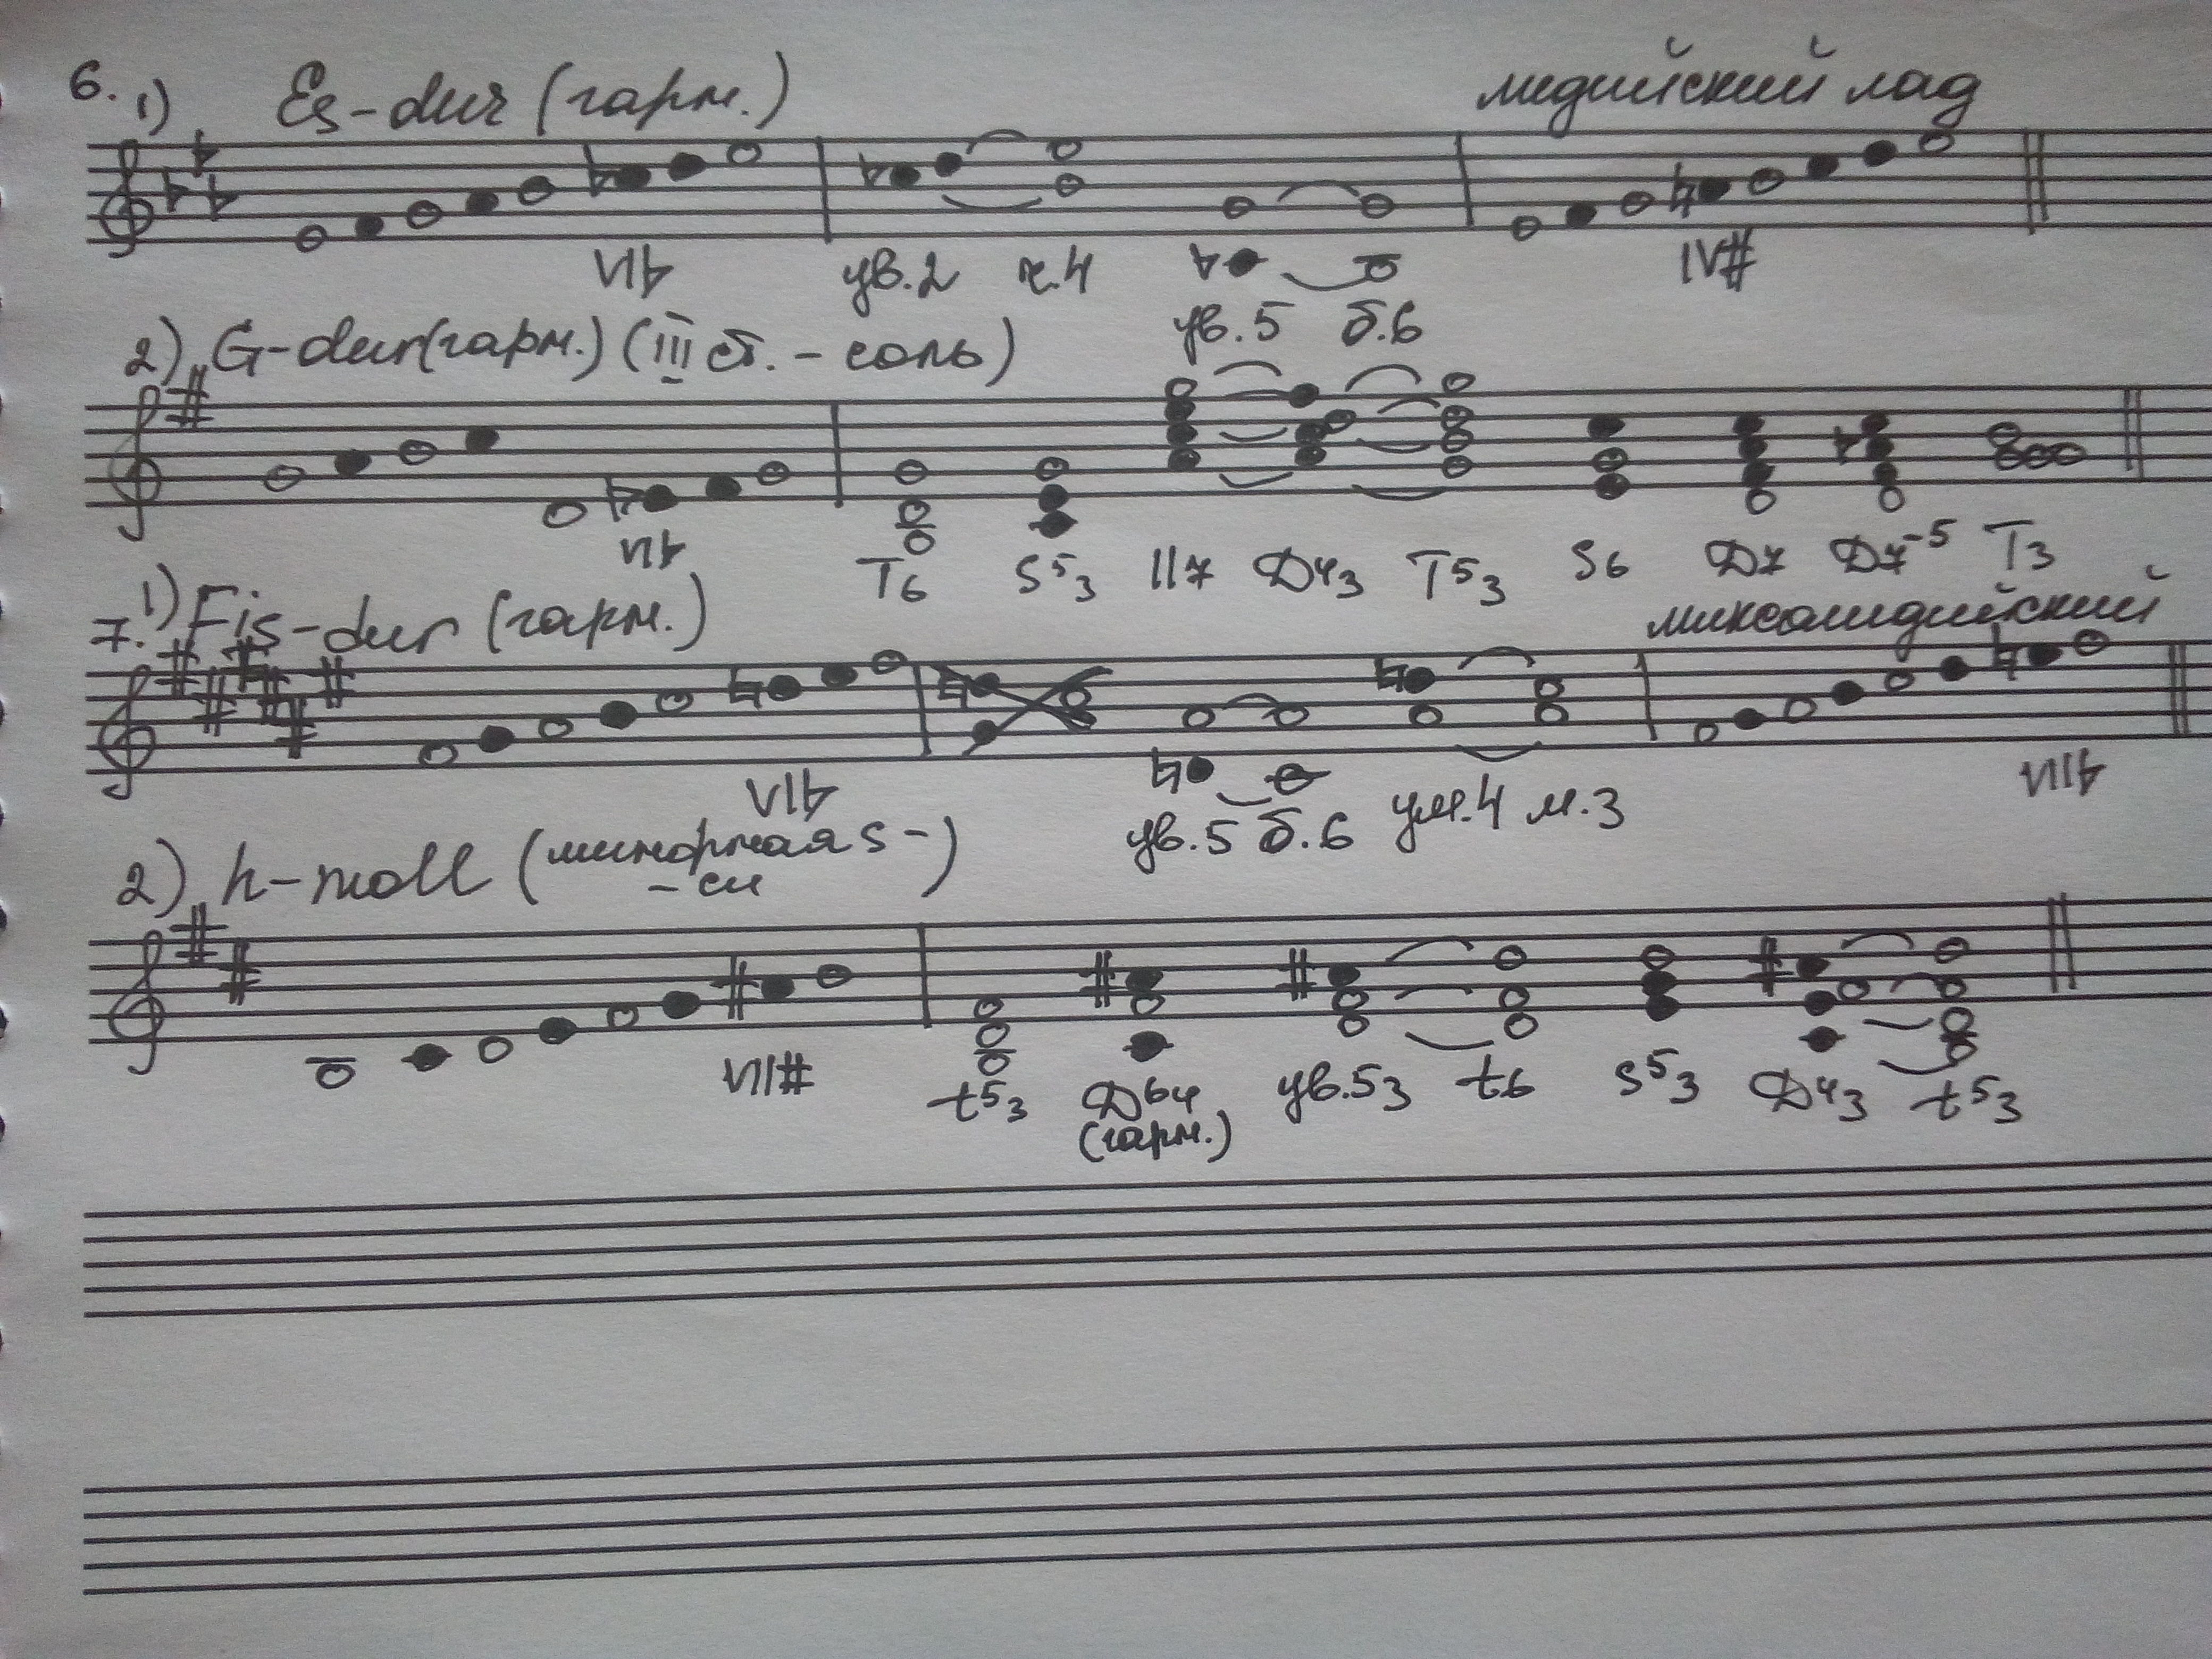 6. 1) Es-dur (гарм.) лидийский лад
VI♭ ув.2 ч.4 IV#
ув.5 б.6
2) G-dur (гарм.) (III ст. - соль)
VI♭ T6 S53 II7 Д43 T53 S6 Д7 Д7-5 T3
7. 1) Fis-dur (гарм.) миксолидийский
VI♭ ув.5 б.6 ум.4 м.3 VII♭
2) h-moll (минорная S -
- си)
VII# t53 Д64 ув.53 t6 S53 Д43 t53
(гарм.)